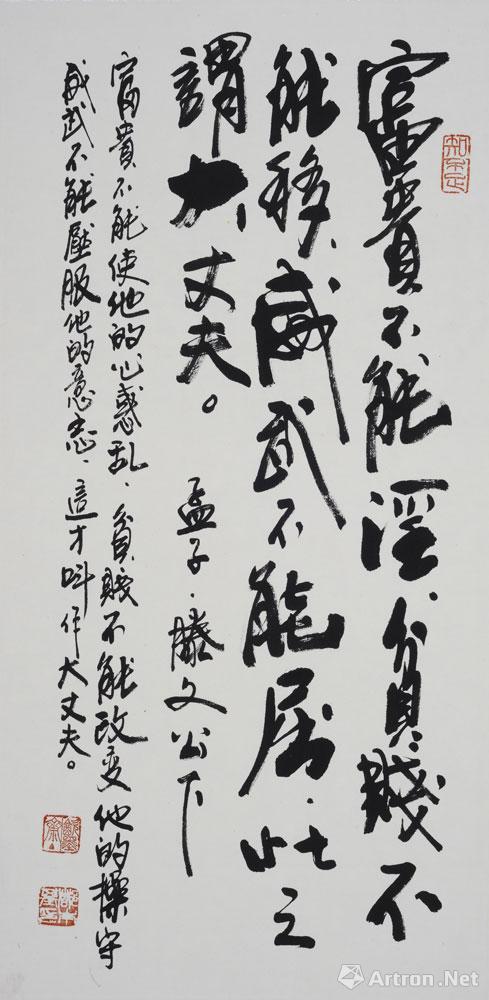 富貴不能淫、貧賤不
能移、威武不能屈、此之
謂大丈夫。
孟子·滕文公下
富貴不能使他的心惑乱、貧賤不能改变他的操守
威武不能壓服他的意志、這才叫作大丈夫。
知不足
Artron.Net